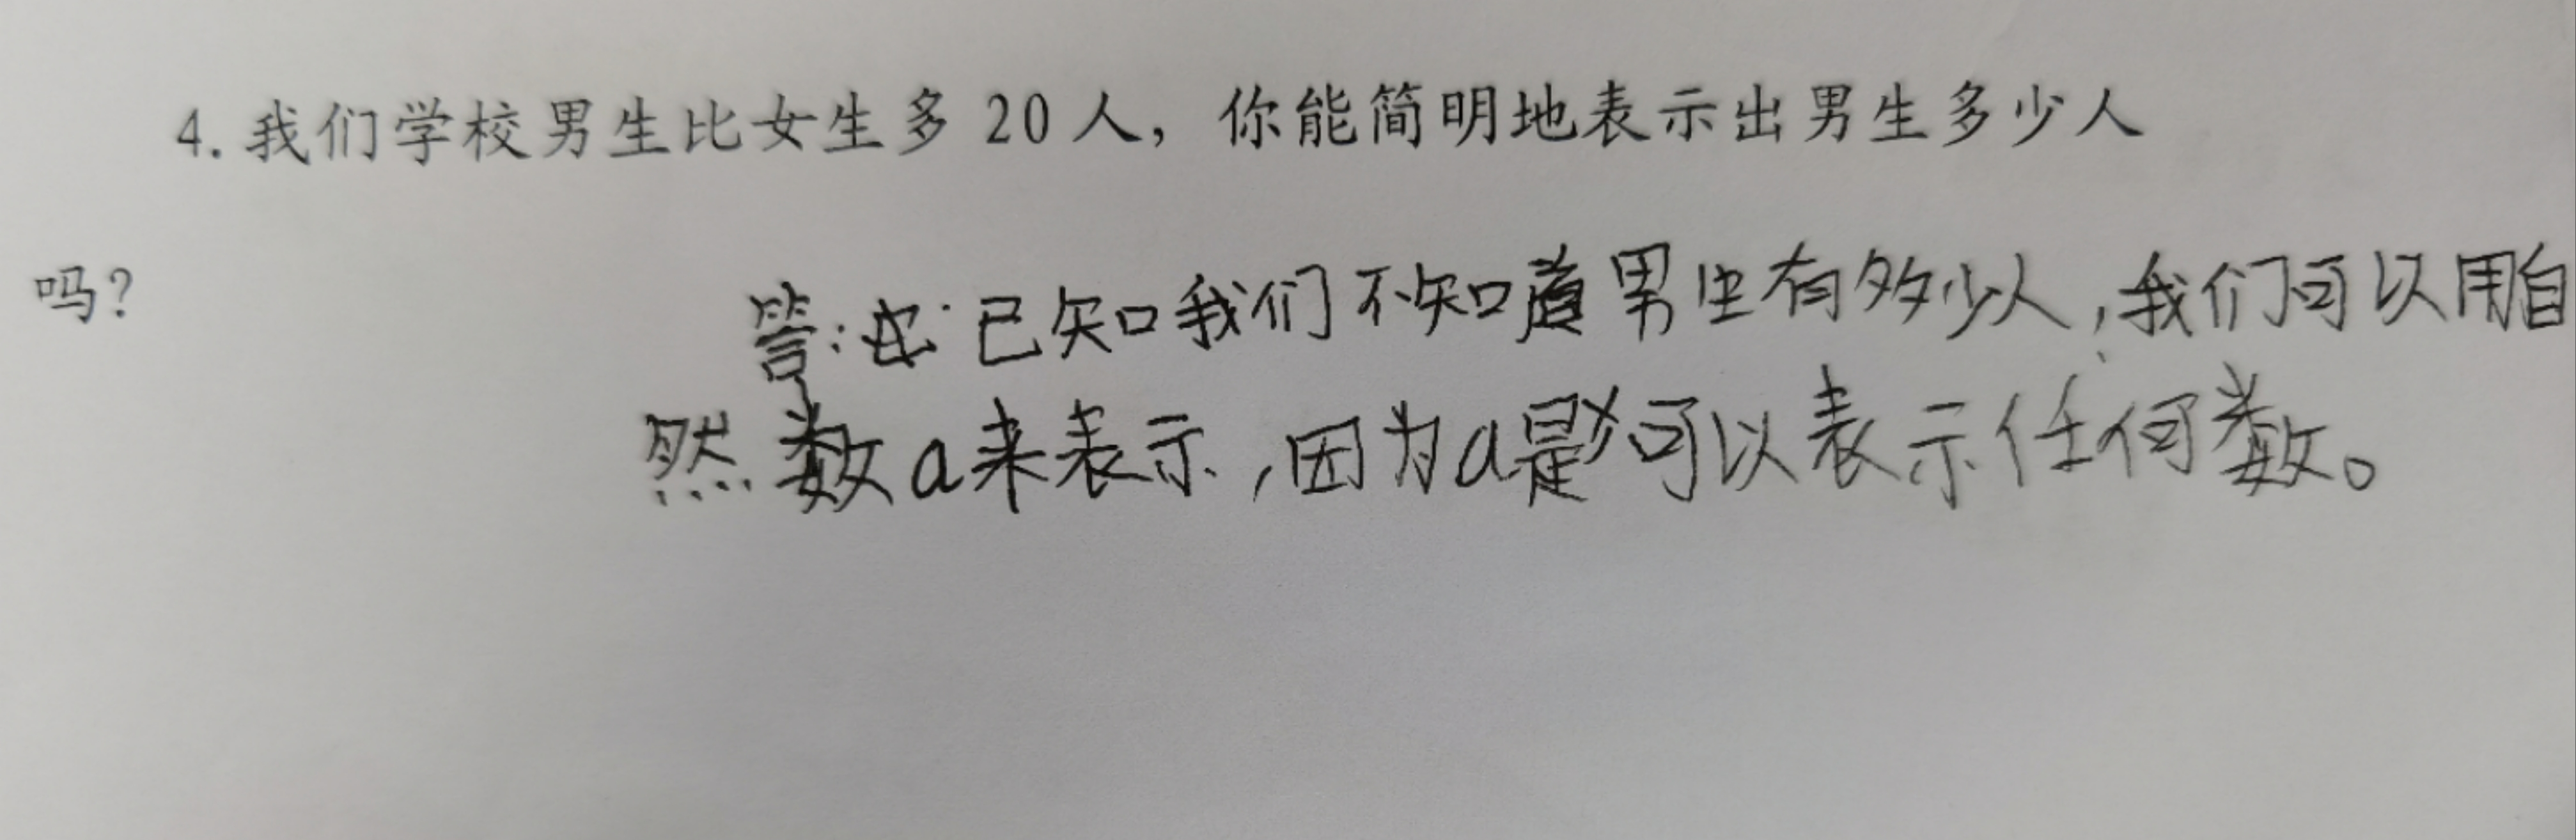 4. 我们学校男生比女生多 20 人，你能简明地表示出男生多少人
吗？
答：已知我们不知道男生有多少人，我们可以用自
然数a来表示，因为a可以表示任何数。